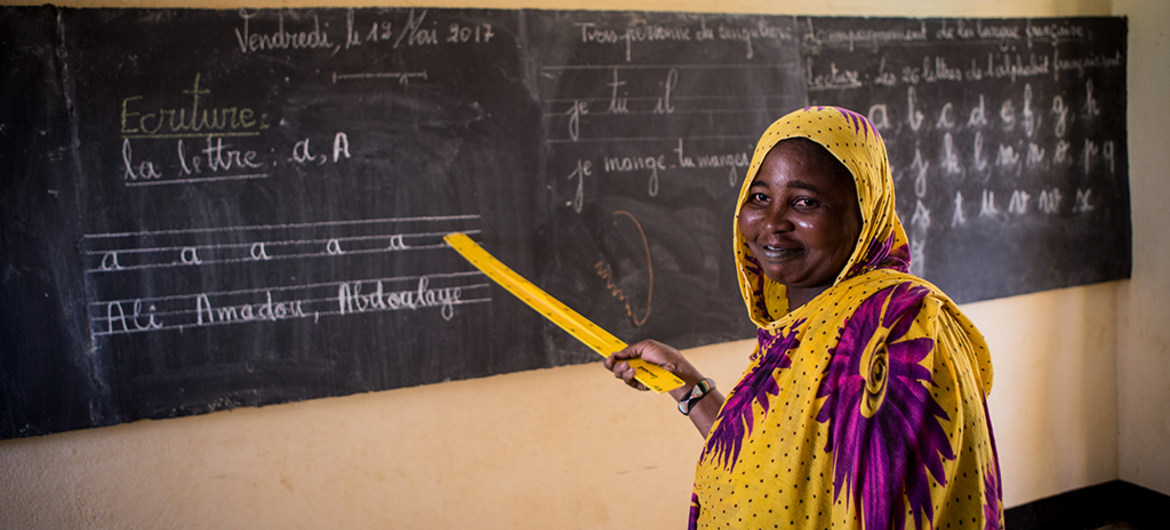 Vendredi, le 12 Mai 2017
Ecriture :
la lettre : a, A
a a a a a
Ali, Amadou, Abdoulaye
Trois personne du singulier:
je tu il
je mange - tu manges
Accompagnement de la langue française:
Lecture : Les 26 lettres de l'alphabet français sont:
a, b, c, d e f, g h
j k l m n o p q
s t u v w x